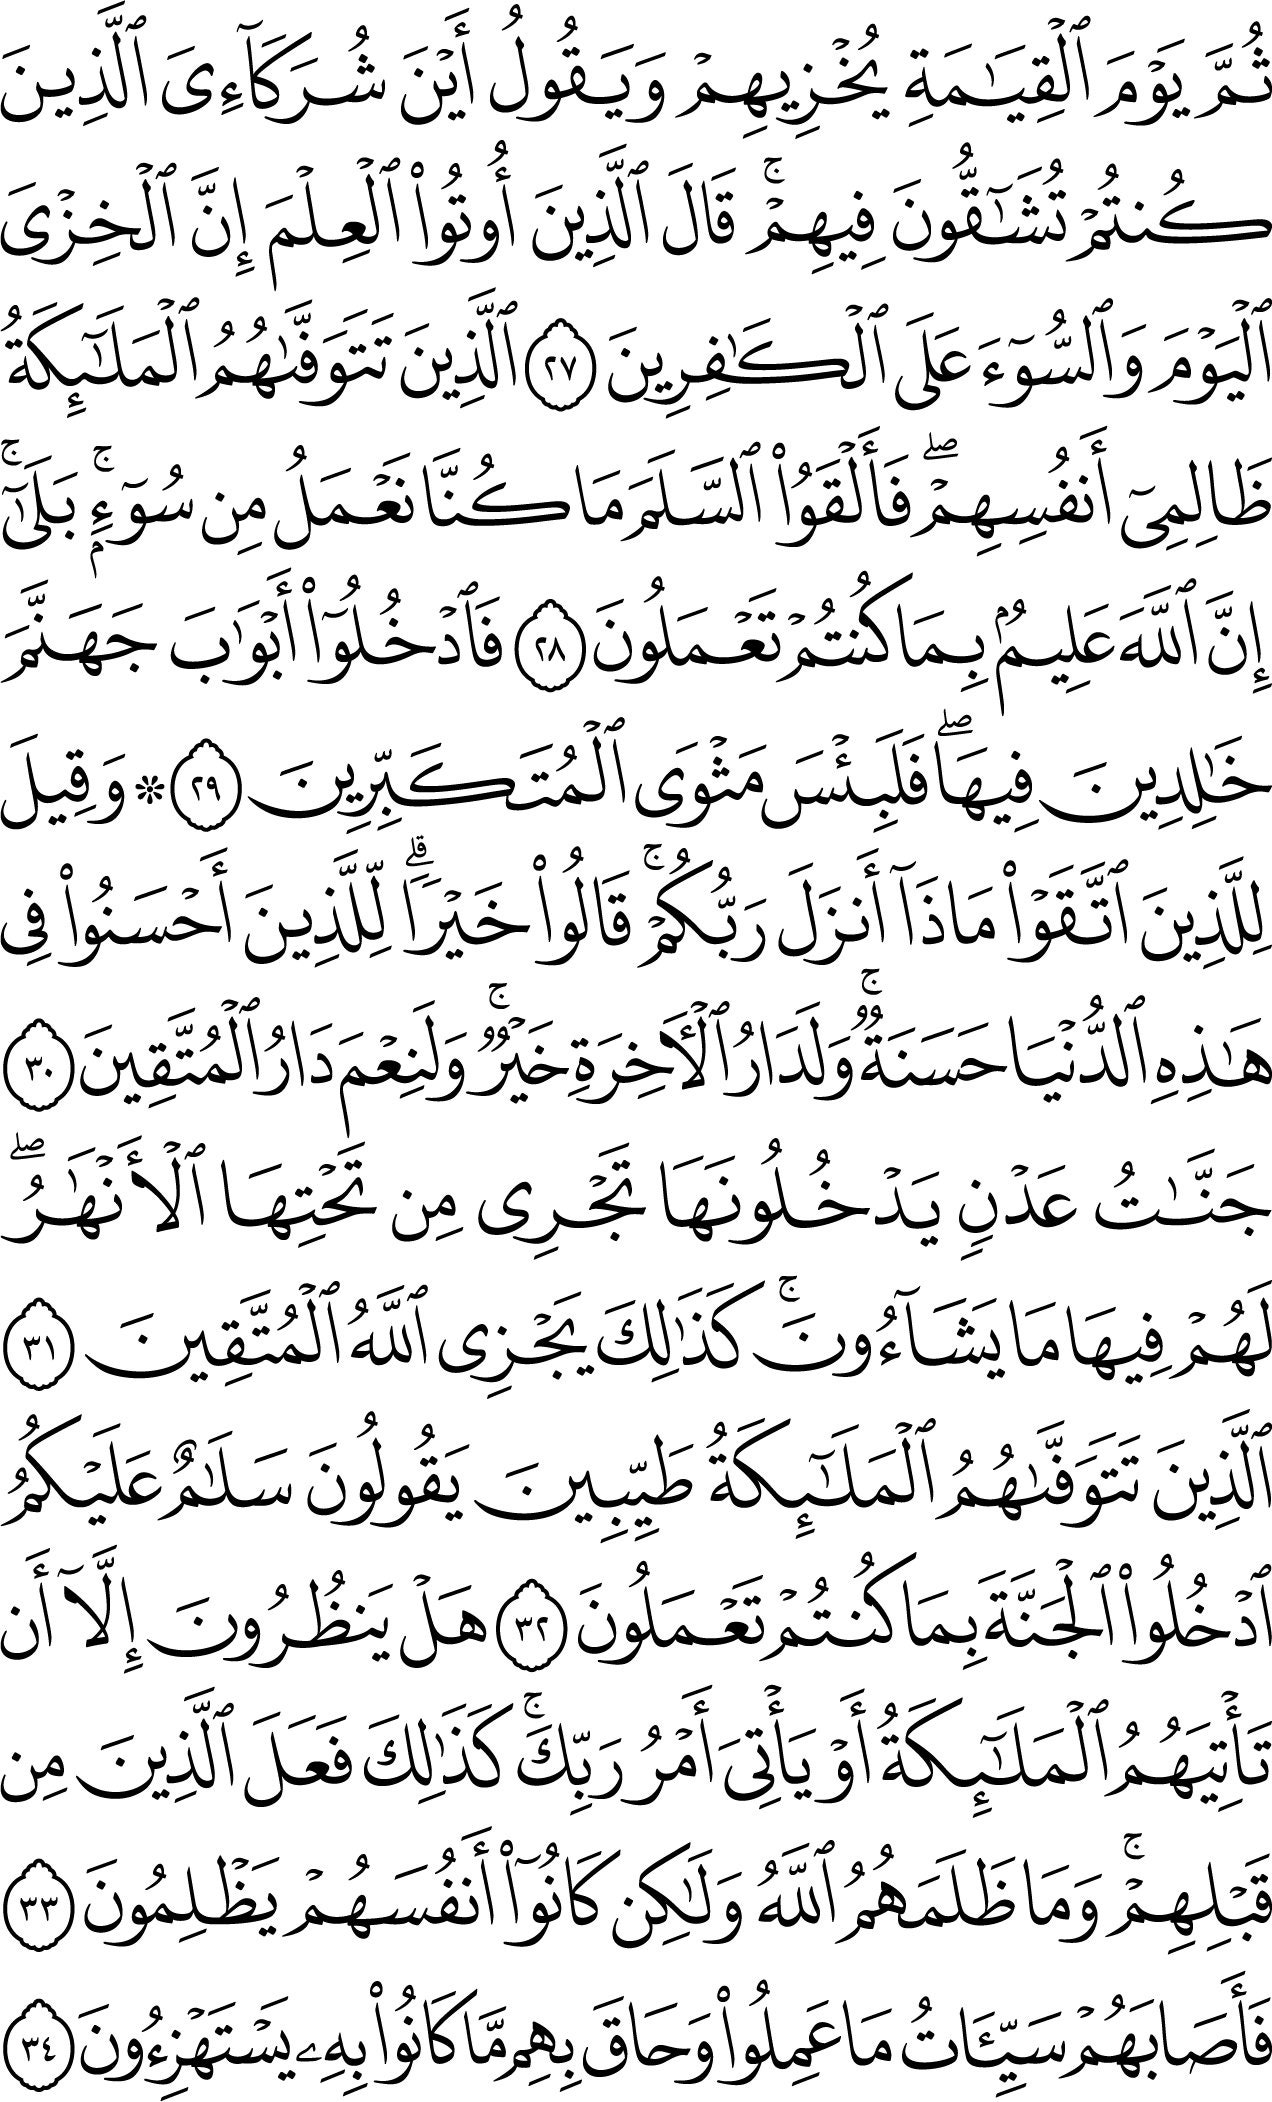 ثُمَّ يَوۡمَ ٱلۡقِيَٰمَةِ يُخۡزِيهِمۡ وَيَقُولُ أَيۡنَ شُرَكَآءِىَ ٱلَّذِينَ
كُنتُمۡ تُشَٰٓقُّونَ فِيهِمۡۚ قَالَ ٱلَّذِينَ أُوتُواْ ٱلۡعِلۡمَ إِنَّ ٱلۡخِزۡىَ
ٱلۡيَوۡمَ وَٱلسُّوٓءَ عَلَى ٱلۡكَٰفِرِينَ ٢٧ ٱلَّذِينَ تَتَوَفَّىٰهُمُ ٱلۡمَلَٰٓئِكَةُ
ظَالِمِىٓ أَنفُسِهِمۡۖ فَأَلۡقَوُاْ ٱلسَّلَمَ مَا كُنَّا نَعۡمَلُ مِن سُوٓءِۭۚ بَلَىٰٓۚ
إِنَّ ٱللَّهَ عَلِيمُۢ بِمَا كُنتُمۡ تَعۡمَلُونَ ٢٨ فَٱدۡخُلُوٓاْ أَبۡوَٰبَ جَهَنَّمَ
خَٰلِدِينَ فِيهَاۖ فَلَبِئۡسَ مَثۡوَى ٱلۡمُتَكَبِّرِينَ ٢٩ ۞ وَقِيلَ
لِلَّذِينَ ٱتَّقَوۡاْ مَاذَآ أَنزَلَ رَبُّكُمۡۚ قَالُواْ خَيۡرٗاۗ لِّلَّذِينَ أَحۡسَنُواْ فِى
هَٰذِهِ ٱلدُّنۡيَا حَسَنَةٞۚ وَلَدَارُ ٱلۡأٓخِرَةِ خَيۡرٞۚ وَلَنِعۡمَ دَارُ ٱلۡمُتَّقِينَ ٣٠
جَنَّٰتُ عَدۡنٖ يَدۡخُلُونَهَا تَجۡرِى مِن تَحۡتِهَا ٱلۡأَنۡهَٰرُۖ
لَهُمۡ فِيهَا مَا يَشَآءُونَۚ كَذَٰلِكَ يَجۡزِى ٱللَّهُ ٱلۡمُتَّقِينَ ٣١
ٱلَّذِينَ تَتَوَفَّىٰهُمُ ٱلۡمَلَٰٓئِكَةُ طَيِّبِينَ يَقُولُونَ سَلَٰمٌ عَلَيۡكُمُ
ٱدۡخُلُواْ ٱلۡجَنَّةَ بِمَا كُنتُمۡ تَعۡمَلُونَ ٣٢ هَلۡ يَنظُرُونَ إِلَّآ أَن
تَأۡتِيَهُمُ ٱلۡمَلَٰٓئِكَةُ أَوۡ يَأۡتِىَ أَمۡرُ رَبِّكَۚ كَذَٰلِكَ فَعَلَ ٱلَّذِينَ مِن
قَبۡلِهِمۡۚ وَمَا ظَلَمَهُمُ ٱللَّهُ وَلَٰكِن كَانُوٓاْ أَنفُسَهُمۡ يَظۡلِمُونَ ٣٣
فَأَصَابَهُمۡ سَيِّـَٔاتُ مَا عَمِلُواْ وَحَاقَ بِهِم مَّا كَانُواْ بِهِۦ يَسۡتَهۡزِءُونَ ٣٤